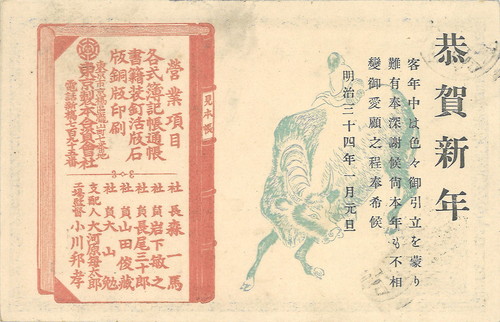 恭賀新年
客年中は色々御引立を蒙り
難有奉深謝候尙本年も不相
變御愛顧之程奉希候
明治三十四年一月元旦
見本帳
營業項目
各式簿記帳通帳
書籍装釘活版石
版銅版印刷
東京製本合資會社
社長森一馬
社員岩下敏之
社員長尾三十郎
社員山田俊藏
社員大山勉
支配人大河原雄太郎
工場監督小川邦孝